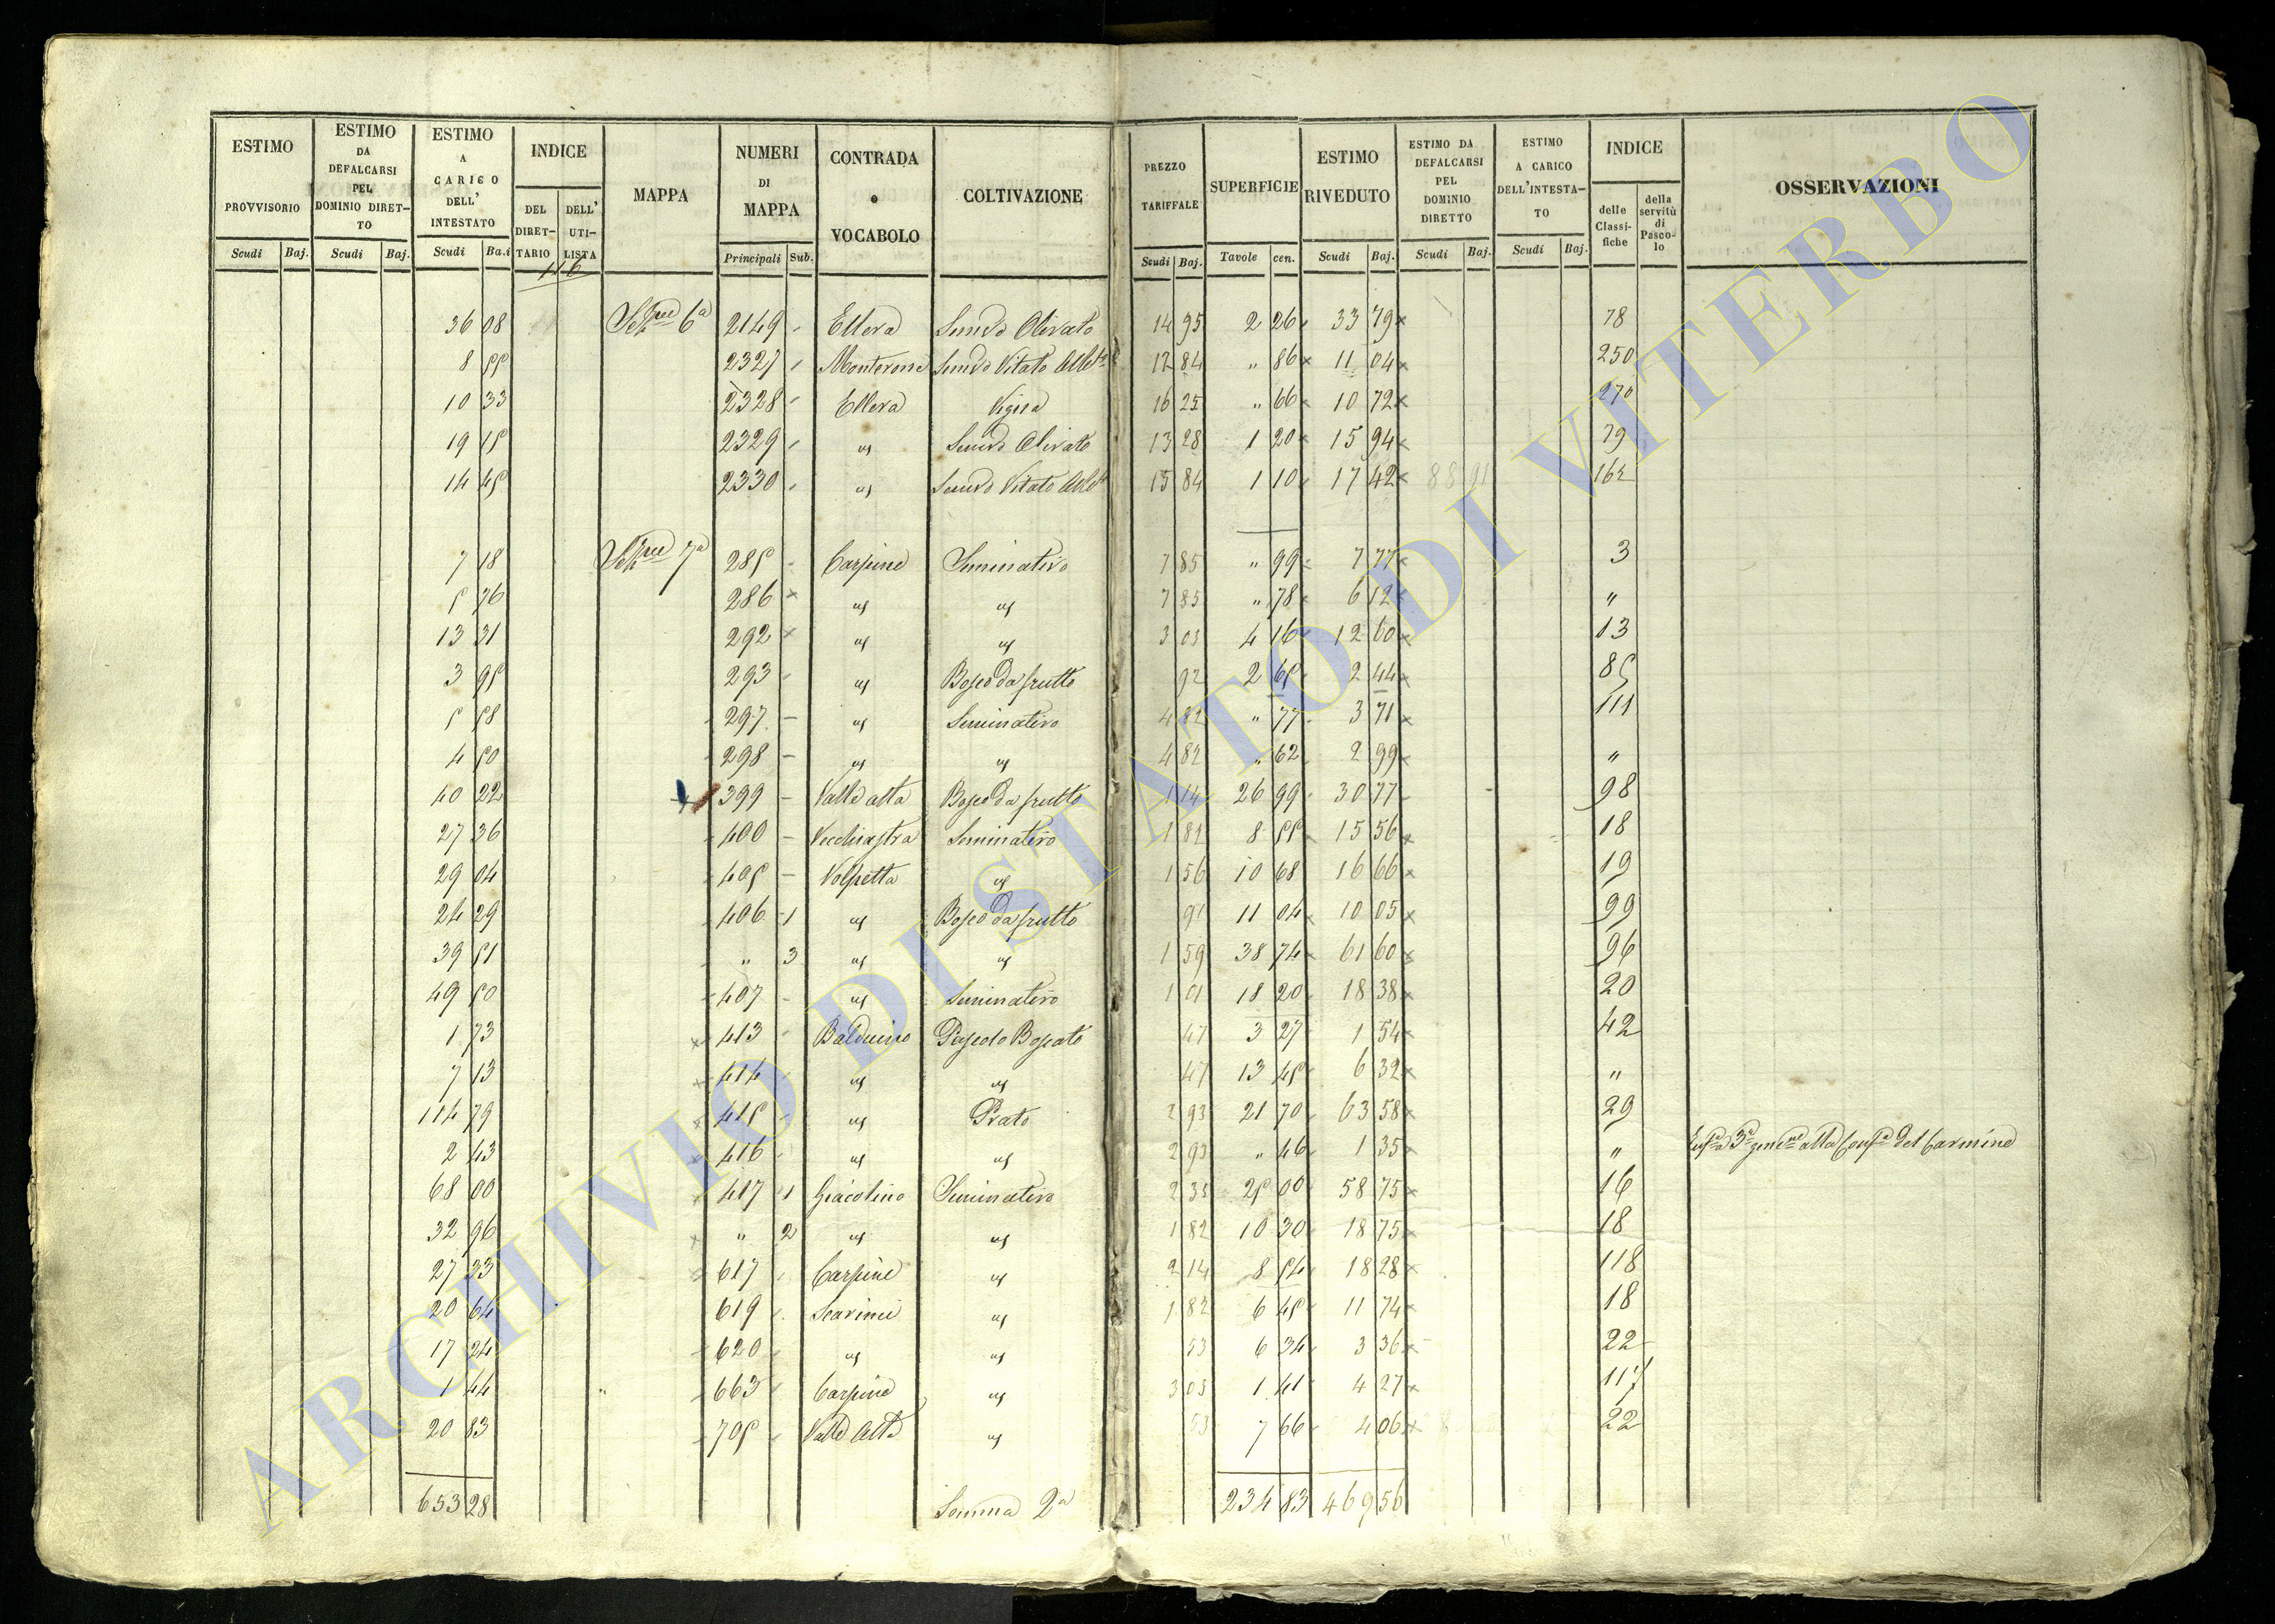 ESTIMO PROVVISORIO Scudi Baj. ESTIMO DA DEFALCARSI PEL DOMINIO DIRETTO Scudi Baj. ESTIMO A CARICO DELL' INTESTATO Scudi Ba.i INDICE DEL DIRETTARIO DELL' UTILISTA MAPPA NUMERI DI MAPPA Principali Sub. CONTRADA o VOCABOLO COLTIVAZIONE PREZZO TARIFFALE Scudi Baj. SUPERFICIE Tavole cen. ESTIMO RIVEDUTO Scudi Baj. ESTIMO DA DEFALCARSI PEL DOMINIO DIRETTO Scudi Baj. ESTIMO A CARICO DELL'INTESTATO Scudi Baj. INDICE delle Classifiche della servitù di Pascolo OSSERVAZIONI
116
36 08 6a 2149 Ellera Olivato 14 95 2 26 33 79 78
8 55 2327 Monterone Vitato 12 84 " 86 11 04 250
10 33 2328 Ellera Vigna 16 25 " 66 10 72 270
19 15 2329 " Olivato 13 28 1 20 15 94 79
14 45 2330 " Vitato 15 84 1 10 17 42 88 91 162
7 18 7a 285 Carpine Seminativo 7 85 " 99 7 77 3
5 76 286 " " 7 85 " 78 6 12 "
13 31 292 " " 3 03 4 16 12 60 13
3 95 293 " Bosco da frutto 92 2 65 2 44 85
5 58 297 " Seminativo 4 82 " 77 3 71 111
4 50 298 " " 4 82 " 62 2 99 "
40 22 399 Valle alta Bosco da frutto 1 14 26 99 30 77 98
27 36 400 Vecchiastra Seminativo 1 82 8 55 15 56 18
29 04 405 Volpetta " 1 56 10 68 16 66 19
24 29 406 1 " Bosco da frutto 91 11 04 10 05 99
39 51 " 3 " " 1 59 38 74 61 60 96
49 50 407 " Seminativo 1 01 18 20 18 38 20
1 73 413 Balduino Pascolo Boscato 47 3 27 1 54 42
7 13 414 " " 47 13 45 6 32 "
114 79 415 " Prato 2 93 21 70 63 58 29
2 43 416 " " 2 93 " 46 1 35 " alla del Carmine
68 00 417 1 Giacolino Seminativo 2 35 25 00 58 75 16
32 96 " 2 " " 1 82 10 30 18 75 18
27 33 617 Carpine " 2 14 8 54 18 28 118
20 64 619 Scarinci " 1 82 6 45 11 74 18
17 24 620 " " 53 6 34 3 36 22
1 44 663 Carpine " 3 03 1 41 4 27 117
20 83 705 Valle Alta " 53 7 66 4 06 22
653 28 Somma 2a 234 83 469 56
ARCHIVIO DI STATO DI VITERBO